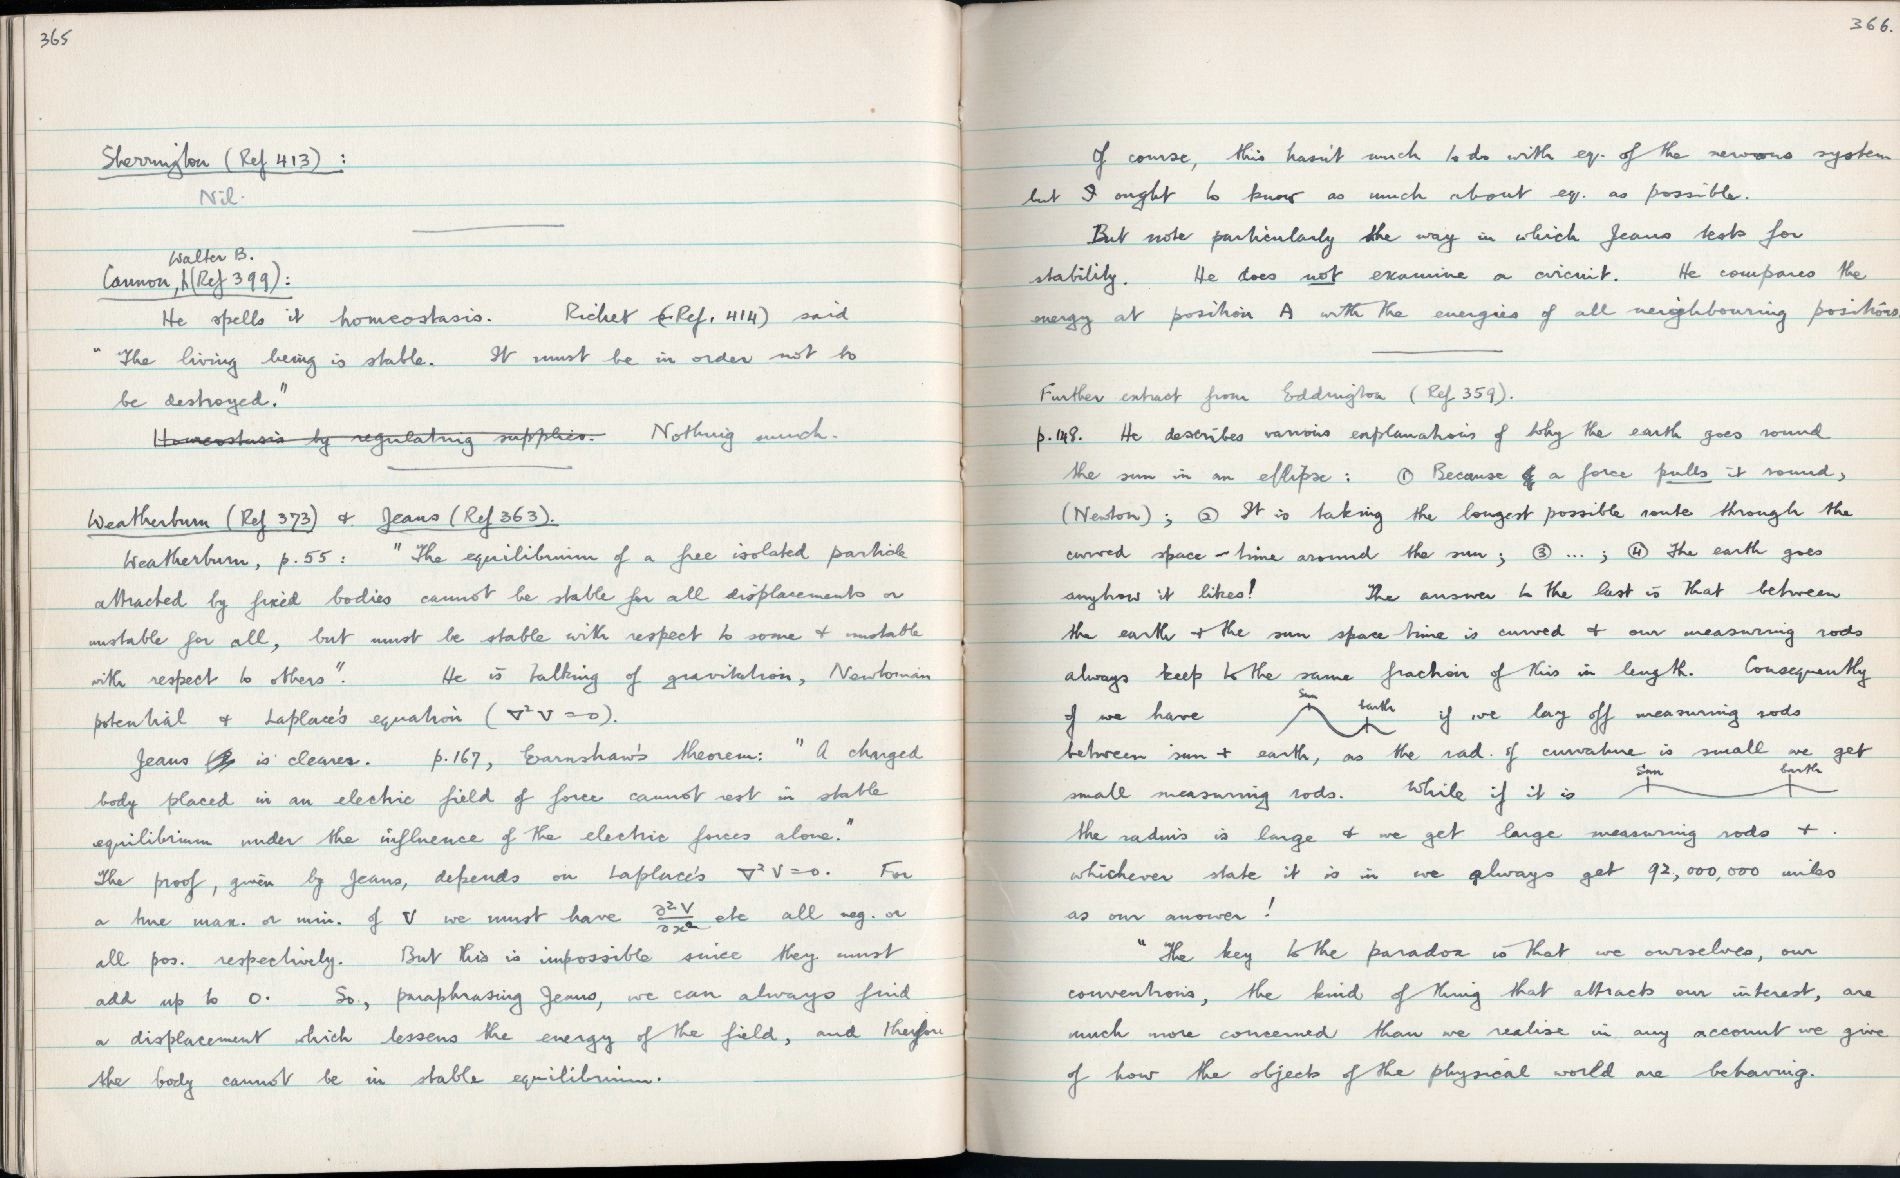 365
Sherrington (Ref 413) :
Nil.
Walter B.
Cannon, (Ref 399) :
He spells it homeostasis. Richet (Ref. 414) said
" The living being is stable. It must be in order not to
be destroyed."
Homeostasis by regulating supplies. Nothing much.
Weatherburn (Ref 373) & Jeans (Ref 363).
Weatherburn, p. 55 : " The equilibrium of a free isolated particle
attracted by fixed bodies cannot be stable for all displacements or
unstable for all, but must be stable with respect to some & unstable
with respect to others". He is talking of gravitation, Newtonian
potential & Laplace's equation ( ∇²V = 0).
Jeans is clearer. p. 167, Earnshaw's theorem: " A charged
body placed in an electric field of force cannot rest in stable
equilibrium under the influence of the electric forces alone."
The proof, given by Jeans, depends on Laplace's ∇²V = 0. For
a true max. or min. of V we must have ∂²V/∂x² etc all neg. or
all pos. respectively. But this is impossible since they must
add up to 0. So, paraphrasing Jeans, we can always find
a displacement which lessens the energy of the field, and therefore
the body cannot be in stable equilibrium.
366.
Of course, this hasn't much to do with eq. of the nervous system
but I ought to know as much about eq. as possible.
But note particularly the way in which Jeans tests for
stability. He does not examine a circuit. He compares the
energy at position A with the energies of all neighbouring positions.
Further extract from Eddington (Ref 359).
p. 148. He describes various explanations of why the earth goes round
the sun in an ellipse : ① Because a force pulls it round,
(Newton) ; ② It is taking the longest possible route through the
curved space-time around the sun ; ③ ... ; ④ The earth goes
anyhow it likes! The answer to the last is that between
the earth & the sun space time is curved & our measuring rods
always keep to the same fraction of this in length. Consequently
if we have Sun Earth if we lay off measuring rods
between sun & earth, as the rad. of curvature is small we get
small measuring rods. While if it is Sun Earth
the radius is large & we get large measuring rods & .
whichever state it is in we always get 92,000,000 miles
as our answer !
" The key to the paradox is that we ourselves, our
conventions, the kind of thing that attracts our interest, are
much more concerned than we realise in any account we give
of how the objects of the physical world are behaving.